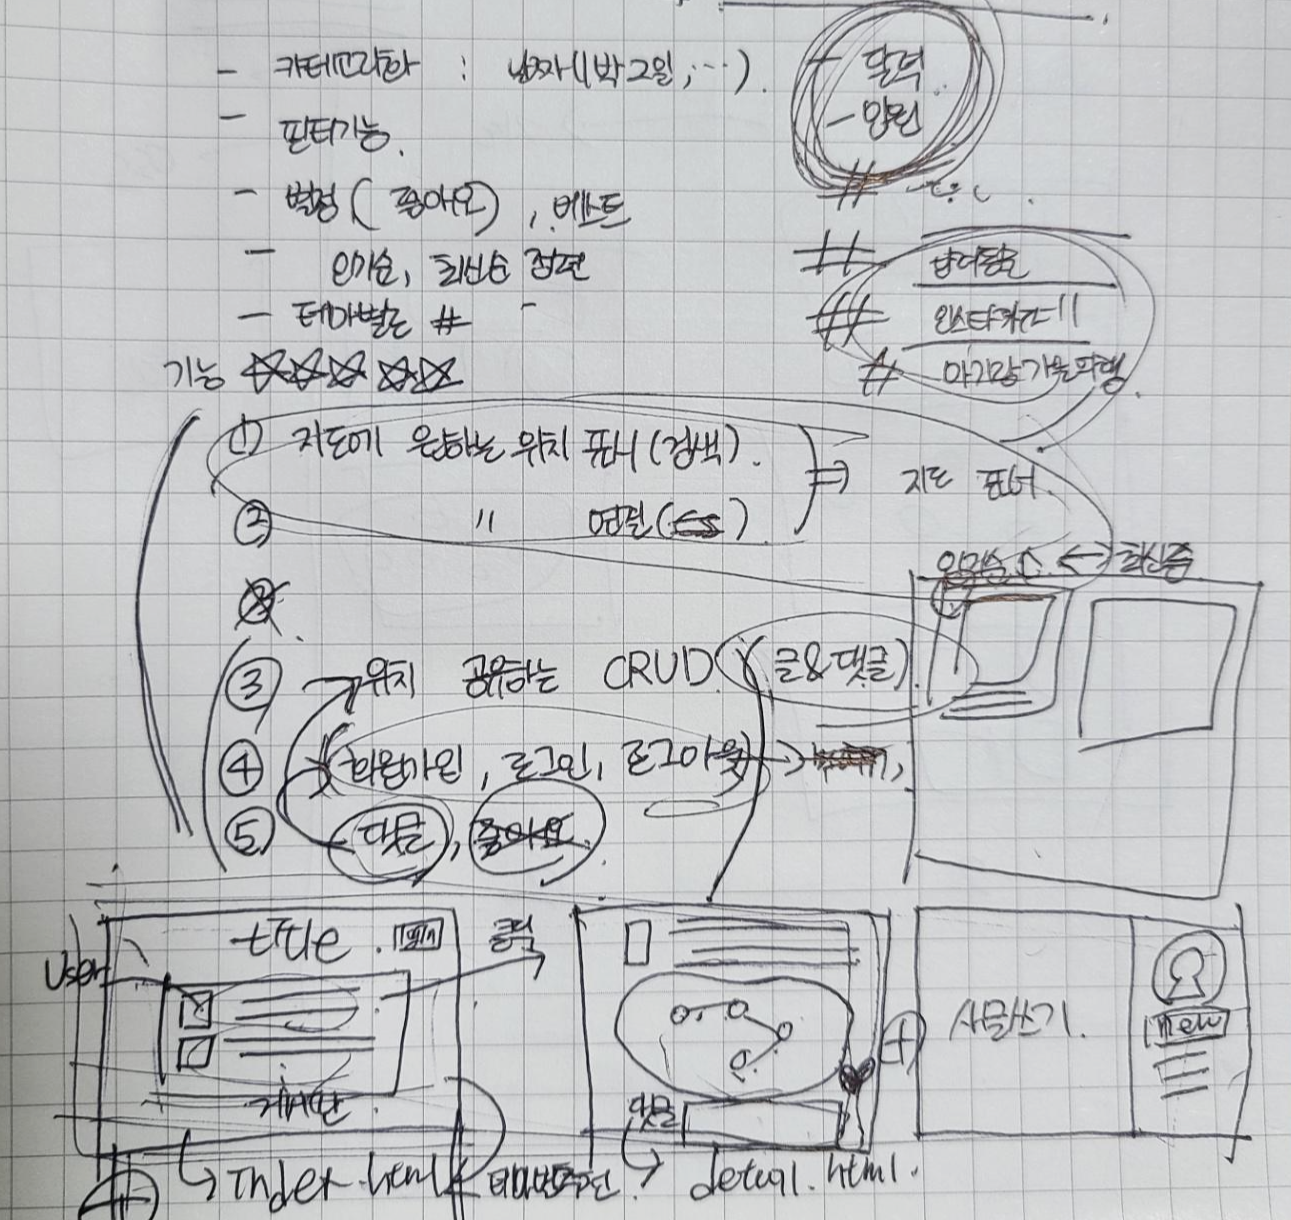 - 카테고리화 : 날짜(1박2일, ...).
- 달력
- 앨범
- 필터기능.
- 별점(좋아요), 베스트
- 인기순, 최신순 정렬
- 테마별로 #
#
##
# 인스타
# 가을
기능
① 지도에 원하는 위치 표시(검색).
② " 연결( )
⇒ 지도
인기순 ↔ 최신순
③ 위치 공유하는 CRUD (글&댓글)
④ 회원가입, 로그인, 로그아웃 →
⑤ 댓글, 좋아요.
title. login
User
클릭
게시판
댓글
새글쓰기
new
Index.html
detail.html.